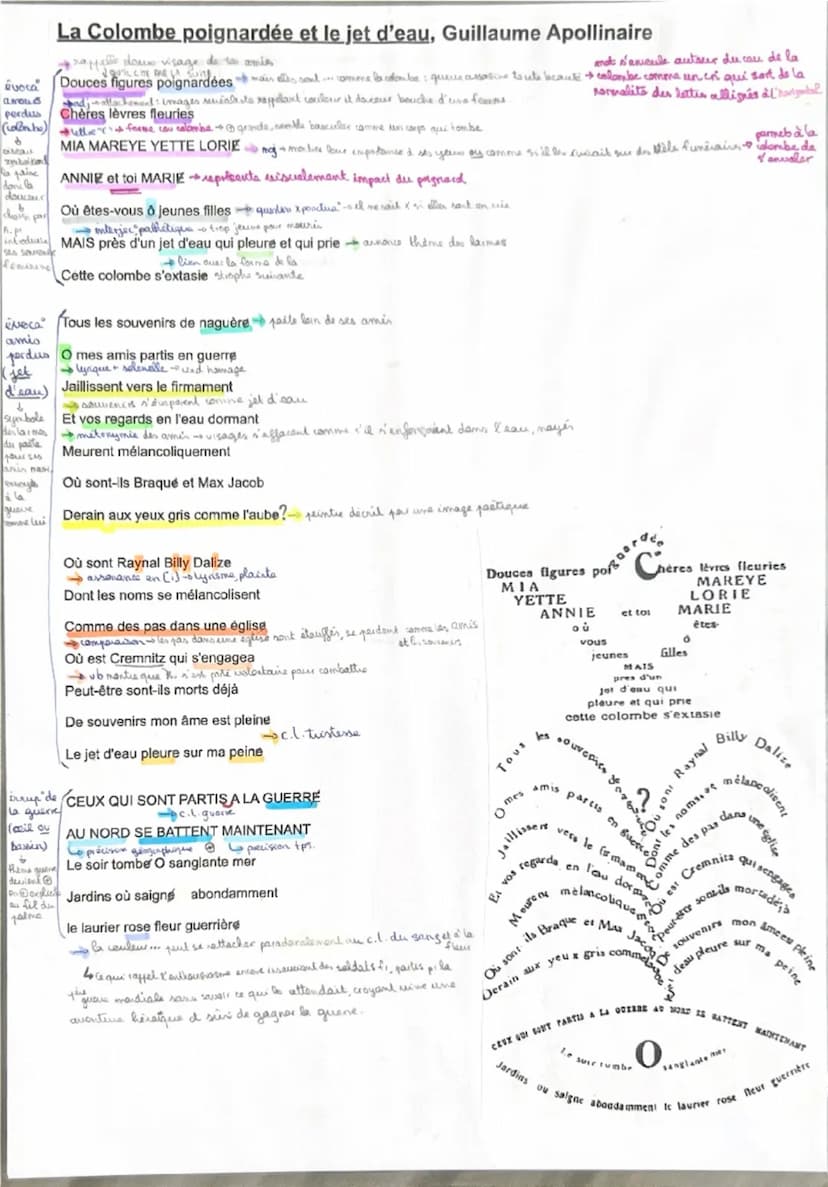 La Colombe poignardée et le jet d'eau, Guillaume Apollinaire
→ rappelle doux visage de ses amis
Douces figures poignardées → mais elles sont ... comme la colombe : guerre assassine toute beauté
→ mot s'enroule autour du cou de la
colombe comme un cri qui sort de la
normalité des lettres alignées à l'horizontal
→ adj → attachement : images sensuelles rappelant couleur et douceur bouche d'une femme
Chères lèvres fleuries
→ lettre "C" → forme cou colombe → ⊕ grande, semble basculer comme un corps qui tombe
MIA MAREYE YETTE LORIE → maj → montre leur importance à ses yeux ou comme si elles
permet à la
colombe de
s'envoler
ANNIE et toi MARIE → représente visuellement impact du poignard
Où êtes-vous ô jeunes filles → question
→ interjec° pathétique → trop jeune pour mourir
MAIS près d'un jet d'eau qui pleure et qui prie → annonce thème des larmes
→ lien avec la forme de la
Cette colombe s'extasie strophe suivante
évoca°
amours
perdus
(colombe)
↓
oiseau
symbolisant
la paix
dans la
douceur
↓
choisi par
introduire
ses souvenirs
féminins
Tous les souvenirs de naguère → parle loin de ses amis
O mes amis partis en guerre
→ lyrique + solennelle → rend hommage
Jaillissent vers le firmament
→ souvenirs s'évaporent comme jet d'eau
Et vos regards en l'eau dormant
→ métonymie des amis → visages s'effacent comme s'il s'enfonçaient dans l'eau, noyés
Meurent mélancoliquement
Où sont-ils Braque et Max Jacob
Derain aux yeux gris comme l'aube? → peintre décrit par une image poétique
Où sont Raynal Billy Dalize
→ assonance en [i] → lyrisme, plainte
Dont les noms se mélancolisent
Comme des pas dans une église
→ comparaison → les pas dans une église sont étouffés, se perdent comme les amis
et le souvenir
Où est Cremnitz qui s'engagea
→ vb montre que
Peut-être sont-ils morts déjà
De souvenirs mon âme est pleine
→ c.l. tristesse
Le jet d'eau pleure sur ma peine
évoca°
amis
perdus
(jet
d'eau)
↓
symbole
des larmes
du poète
pour ses
amis
envoyés
à la
guerre
comme lui
CEUX QUI SONT PARTIS A LA GUERRE
→ c.l. guerre
AU NORD SE BATTENT MAINTENANT
↳ précision géographique ⊕ ↳ précision tps.
Le soir tombe O sanglante mer
Jardins où saigne abondamment
le laurier rose fleur guerrière
→ la couleur ... peut se rattacher paradoxalement au c.l. du sang et à la
fleur
↳ Ce qui rappel l'enthousiasme encore des soldats fr, partis pr la
guerre mondiale sans savoir ce qui les attendait, croyant vivre une
aventure héroïque et sûrs de gagner la guerre.
irrup° de
la guerre
(œil ou
bassin)
↓
thème guerre
devient ⊕
en ⊕ explicite
au fil du
poème
Douces figures poignardées Chères lèvres fleuries
MIA MAREYE
YETTE LORIE
ANNIE et toi MARIE
où êtes-
vous ô
jeunes filles
MAIS
près d'un
jet d'eau qui
pleure et qui prie
cette colombe s'extasie
Tous les souvenirs de naguère
O mes amis partis en guerre
Jaillissent vers le firmament
Et vos regards en l'eau dormant
Meurent mélancoliquement
Où sont ils Braque et Max Jacob
Derain aux yeux gris comme l'aube
?
Où sont Raynal Billy Dalize
Dont les noms se mélancolisent
Comme des pas dans une église
Où est Cremnitz qui s'engagea
Peut-être sont-ils morts déjà
De souvenirs mon âme est pleine
Le jet d'eau pleure sur ma peine
CEUX QUI SONT PARTIS A LA GUERRE AU NORD SE BATTENT MAINTENANT
Le soir tombe O sanglante mer
Jardins où saigne abondamment le laurier rose fleur guerrière